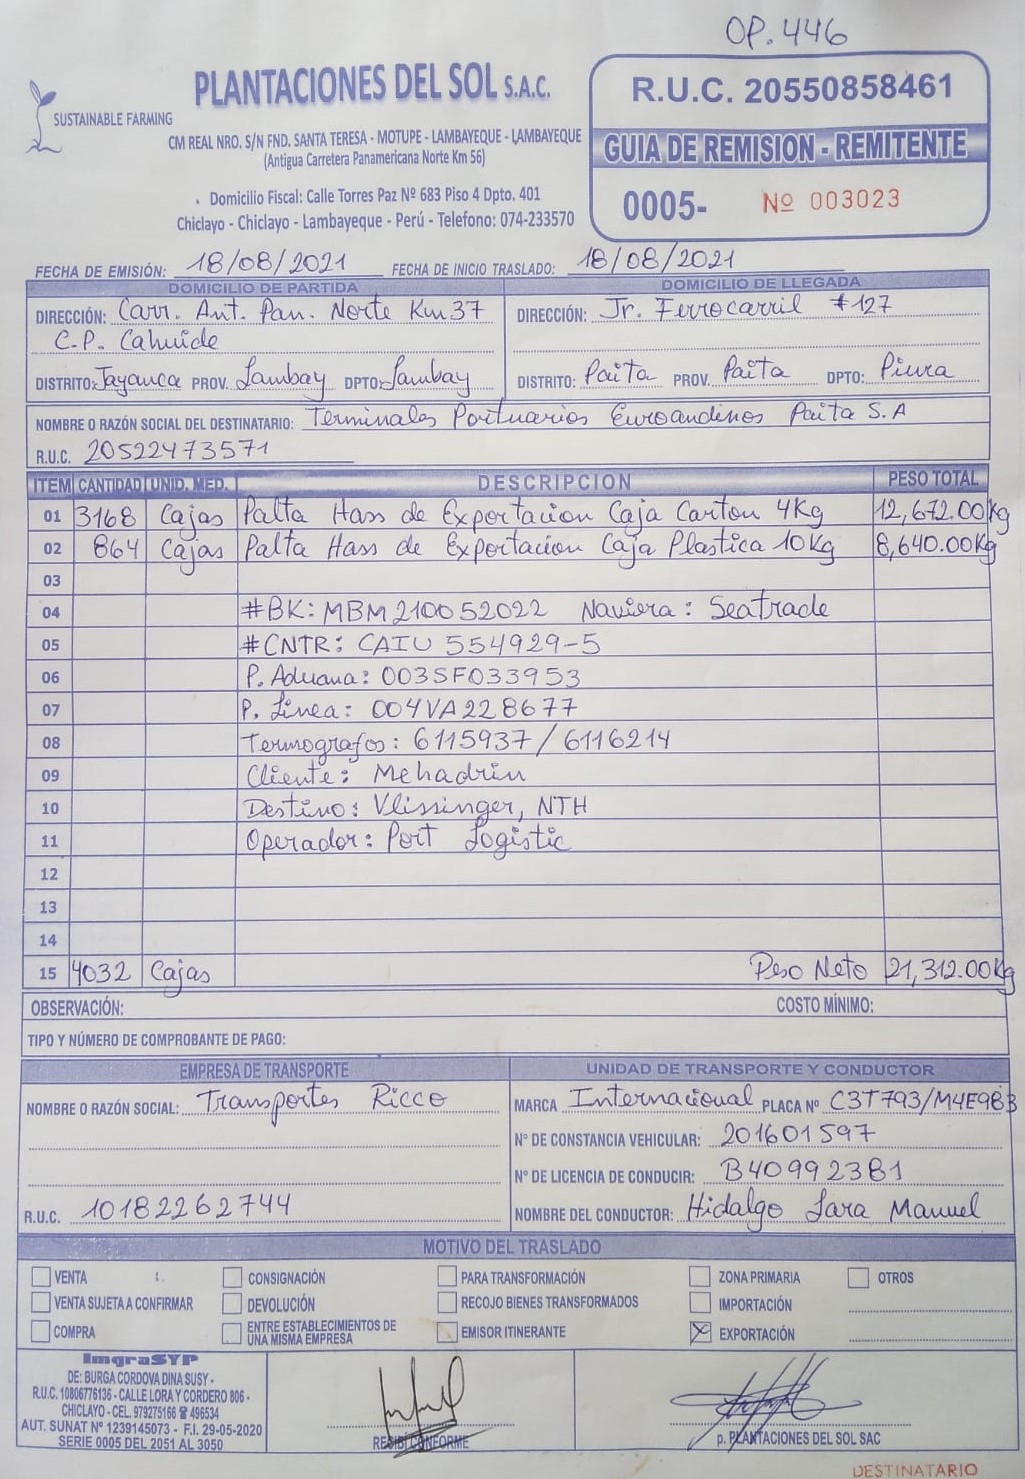 OP. 446
SUSTAINABLE FARMING
PLANTACIONES DEL SOL S.A.C.
CM REAL NRO. S/N FND. SANTA TERESA - MOTUPE - LAMBAYEQUE - LAMBAYEQUE
(Antigua Carretera Panamericana Norte Km 56)
Domicilio Fiscal: Calle Torres Paz Nº 683 Piso 4 Dpto. 401
Chiclayo - Chiclayo - Lambayeque - Perú - Telefono: 074-233570
R.U.C. 20550858461
GUIA DE REMISION - REMITENTE
0005- Nº 003023
FECHA DE EMISIÓN: 18/08/2021 FECHA DE INICIO TRASLADO: 18/08/2021
DOMICILIO DE PARTIDA
DIRECCIÓN: Carr. Ant. Pan. Norte Km 37
C.P. Cahuide
DISTRITO: Jayanca PROV. Lambay DPTO: Lambay
DOMICILIO DE LLEGADA
DIRECCIÓN: Jr. Ferrocarril #127
DISTRITO: Paita PROV. Paita DPTO: Piura
NOMBRE O RAZÓN SOCIAL DEL DESTINATARIO: Terminales Portuarios Euroandinos Paita S.A
R.U.C. 20522473571
ITEM CANTIDAD UNID. MED. DESCRIPCION PESO TOTAL
01 3168 Cajas Palta Hass de Exportacion Caja Carton 4Kg 12,672.00kg
02 864 Cajas Palta Hass de Exportacion Caja Plastica 10Kg 8,640.00Kg
03
04 #BK: MBM210052022 Naviera: Seatrade
05 #CNTR: CAIU 554929-5
06 P. Aduana: 003SF033953
07 P. Linea: 004VA228677
08 Termografos: 6115937 / 6116214
09 Cliente: Mehadrin
10 Destino: Vlissinger, NTH
11 Operador: Port Logistic
12
13
14
15 4032 Cajas Peso Neto 21,312.00Kg
OBSERVACIÓN: COSTO MÍNIMO:
TIPO Y NÚMERO DE COMPROBANTE DE PAGO:
EMPRESA DE TRANSPORTE
NOMBRE O RAZÓN SOCIAL: Transportes Ricco
R.U.C. 10182262744
UNIDAD DE TRANSPORTE Y CONDUCTOR
MARCA Internacional PLACA Nº C3T793/M4E983
Nº DE CONSTANCIA VEHICULAR: 201601597
Nº DE LICENCIA DE CONDUCIR: B40992381
NOMBRE DEL CONDUCTOR: Hidalgo Lara Manuel
MOTIVO DEL TRASLADO
VENTA CONSIGNACIÓN PARA TRANSFORMACIÓN ZONA PRIMARIA OTROS
VENTA SUJETA A CONFIRMAR DEVOLUCIÓN RECOJO BIENES TRANSFORMADOS IMPORTACIÓN
COMPRA ENTRE ESTABLECIMIENTOS DE UNA MISMA EMPRESA EMISOR ITINERANTE EXPORTACIÓN
ImgraSYP
DE: BURGA CORDOVA DINA SUSY -
R.U.C. 10806776136 - CALLE LORA Y CORDERO 806 -
CHICLAYO - CEL. 979275166 ☎ 496534
AUT. SUNAT Nº 1239145073 - F.I. 29-05-2020
SERIE 0005 DEL 2051 AL 3050
RECIBÍ CONFORME
p. PLANTACIONES DEL SOL SAC
DESTINATARIO